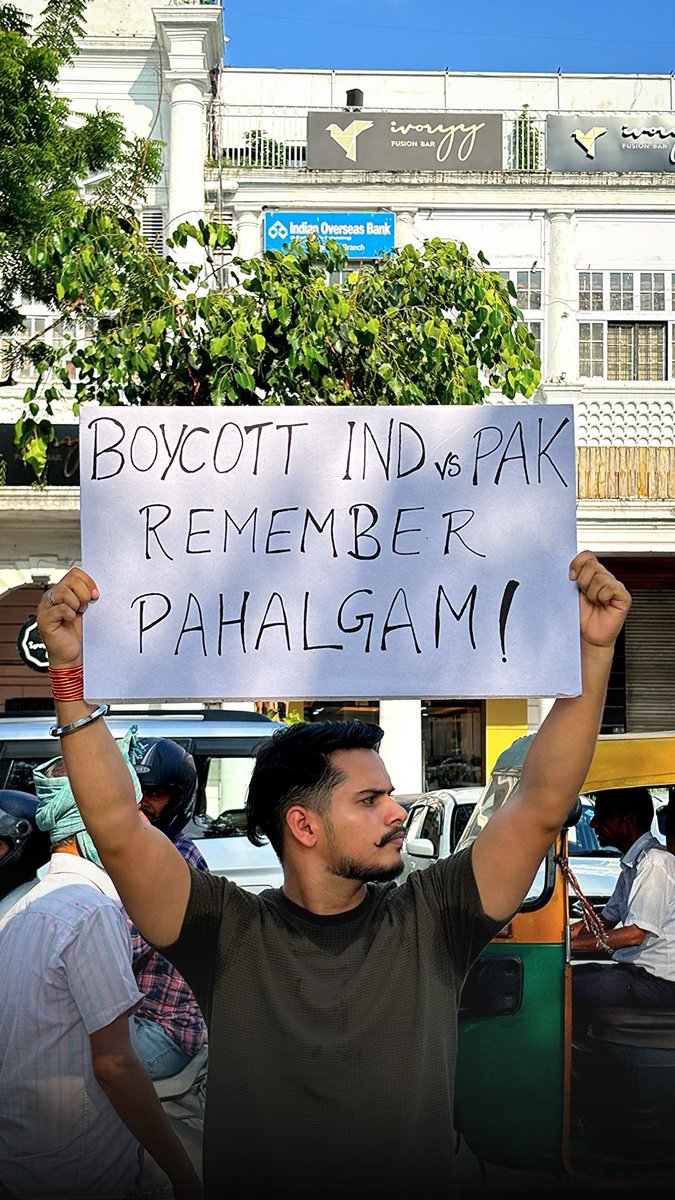 ivoryy
FUSION BAR
ivoryy
FUSION BAR
Indian Overseas Bank
Branch
BOYCOTT IND vs PAK
REMEMBER
PAHALGAM!